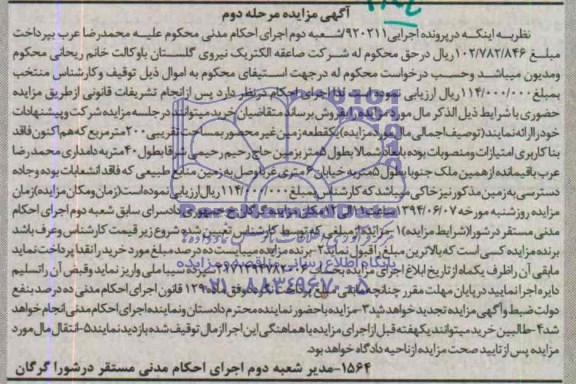 آگهی مزایده مرحله دوم
نظربه اینکه درپرونده اجرایی۹۲۰۲۱۱/شعبه دوم اجرای احکام مدنی محکوم علیه محمدرضا عرب بپرداخت
مبلغ ۱۰۲/۷۸۲/۸۴۶ریال درحق محکوم له شرکت صاعقه الکتریک نیروی گلستان باوکالت خانم ریحانی محکوم
ومدیون میباشد وحسب درخواست محکوم له درجهت استیفای محکوم به اموال ذیل توقیف وکارشناس منتخب
بمبلغ۱۱۴/۰۰۰/۰۰۰ریال ارزیابی نموده است لذا اجرای احکام درنظر دارد پس ازانجام تشریفات قانونی ازطریق مزایده
حضوری با شرایط ذیل الذکر مال مورد مزایده رابفروش برساند متقاضیان خرید میتوانند درجلسه مزایده شرکت وپیشنهادات
خودرا ارائه نمایند(توصیف اجمالی مال مورد مزایده)یکقطعه زمین غیر محصور بمساحت تقریبی ۲۰۰مترمربع که هم اکنون فاقد
بنا کاربری امتیازات ومنصوبات بوده بابعاد شمالا بطول ۵متر بزمین حاج رحیم رحیمی شرقا بطول ۴۰متر به دامداری محمدرضا
عرب باقیمانده ازهمین ملک جنوبا بطول ۵متر به خیابان ۶متری غربا وصل به زمین منابع طبیعی که فاقد انشعابات بوده وجاده
دسترسی به زمین مذکور نیز خاکی می باشد که کارشناس بمبلغ ۱۱۴/۰۰۰/۰۰۰ریال ارزیابی نموده است(زمان ومکان مزایده)زمان
مزایده روزشنبه مورخه ۱۳۹۴/۰۶/۰۷ ساعت ۱۱الی۱۲مکان مزایده گرگان خ جمهوری دادسرای سابق شعبه دوم اجرای احکام
مدنی مستقر درشورا(شرایط مزایده)۱-مزایده از مبلغی که توسط کارشناس تعیین شده شروع زیر قیمت کارشناس وعرف باشد
برنده مزایده کسی است که بالاترین مبلغ را قبول نماید۲-برنده مزایده میبایست ده درصد مبلغ مورد خرید رانقدا پرداخت نماید
مابقی آن راظرف یکماه از تاریخ ابلاغ اجرای مزایده بحساب سپرده شیبا ملی واریز نماید وقبض آن راتسلیم
دایره اجرا نماید درپایان مهلت مقرر چنانچه مابقی مبلغ پرداخت نگردد وفق ماده۱۲۹ قانون اجرای احکام مدنی ده درصد بنفع
دولت ضبط وآگهی مزایده تجدید خواهد شد۳-مزایده باحضور نماینده محترم دادستان ونماینده اجرای احکام مدنی انجام خواهد
شد۴-طالبین خرید میتوانند یکهفته قبل ازاجرای مزایده باهماهنگی این اجرا از مال توقیف شده بازدید نمایند۵-انتقال مال مورد
مزایده پس از تایید صحت مزایده ازناحیه دادگاه خواهد بود.
۱۵۶۴-مدیر شعبه دوم اجرای احکام مدنی مستقر درشورا گرگان
پایگاه اطلاع رسانی مناقصه و مزایده
۰۲۱-۸۸۳۴۹۶۷۰-۵